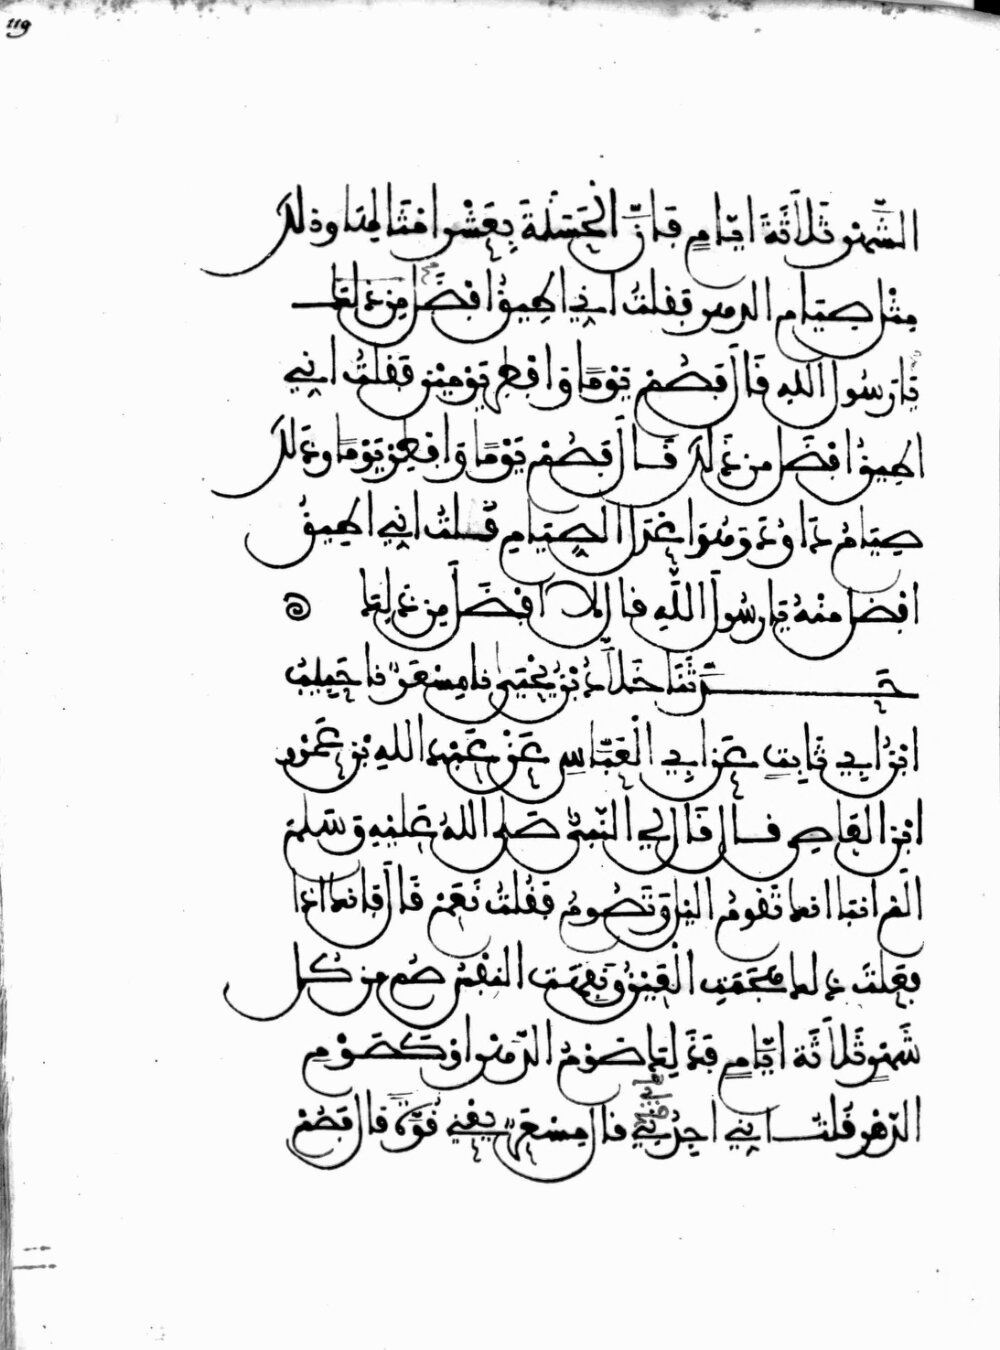 119
الشَّهْرِ ثَلَاثَةَ أَيَّامٍ فَإِنَّ الْحَسَنَةَ بِعَشْرِ أَمْثَالِهَا وذلك
مِثْلُ صِيَامِ الدهر فقلت إني أطيق أفضَلَ مِن ذلك
يَا رَسُولَ اللهِ قَالَ فَصُمْ يَوْمًا وَأفطِر يَوْمَيْنِ فَقُلْتُ إِنِّي
أطِيقُ أفضَلَ من ذَلك قَالَ فَصُمْ يَوْمًا وَأَفْطِرْ يَوْمًا وذَلك
صِيَامُ دَاوُدَ وَهُوَ أَعْدَلُ الصِيَامِ قلتُ إنِّي أطِيقُ
أفضَلَ منْهُ يَا رسُولَ اللَّهِ قال لَا أفْضَلَ مِن ذلِكَ
حَدَّثَنَا خَلَّادُ بْنُ يَحْيَى نا مِسْعَرٌ نا حَبِيبُ
ابْنُ أبِي ثَابِتٍ عَن أبِي الْعَبَّاسِ عَنْ عَبْدِ اللهِ بْنِ عَمْرِو
ابْنِ الْعَاصِي قال قَالَ لِي النَّبِيُّ صَلى اللهُ عَلَيْهِ وَسَلَّمَ
أَلَمْ أُنَبَّأْ أنك تَقُومُ اليْلَ وَتَصُومُ فَقُلْتُ نَعَمْ قَالَ فَإنك إذا
فعَلْتَ ذلك هَجَمَتِ الْعَيْنُ وَنَفِهَتِ النَّفْسُ صُمْ مِن كُل
شَهْرٍ ثَلَاثَةَ أَيَّامٍ فَذَلِكَ صَوْمُ الدَّهْرِ أَوْ كَصَوْمِ
الدَّهْرِ قُلْتُ إِنِّي أَجِدُ بِي قَالَ مِسْعَرٌ يَعْنِي قُوَّةً قَالَ فَصُمْ